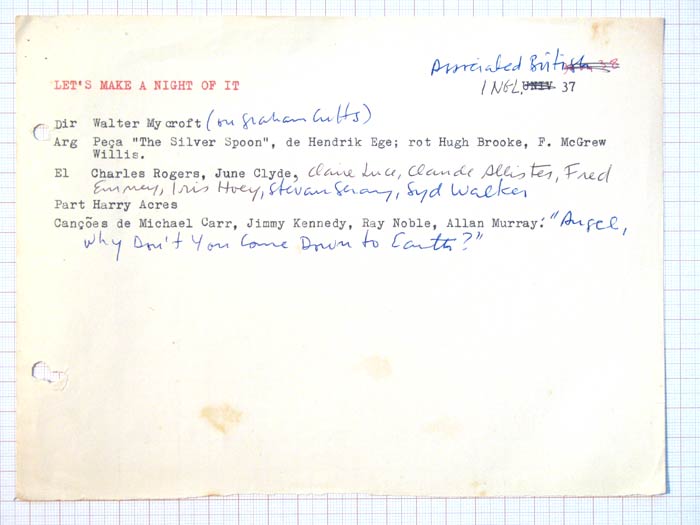 Associated British 38
LET'S MAKE A NIGHT OF IT
INGL. UNIV 37
Dir Walter Mycroft (ou Graham Cutts)
Arg Peça "The Silver Spoon", de Hendrik Ege; rot Hugh Brooke, F. McGrew
Willis.
El Charles Rogers, June Clyde, Claire Luce, Claude Allister, Fred
Emney, Iris Hoey, Stevan Geray, Syd Walker
Part Harry Acres
Canções de Michael Carr, Jimmy Kennedy, Ray Noble, Allan Murray: "Angel,
Why Don't You Come Down to Earth?"